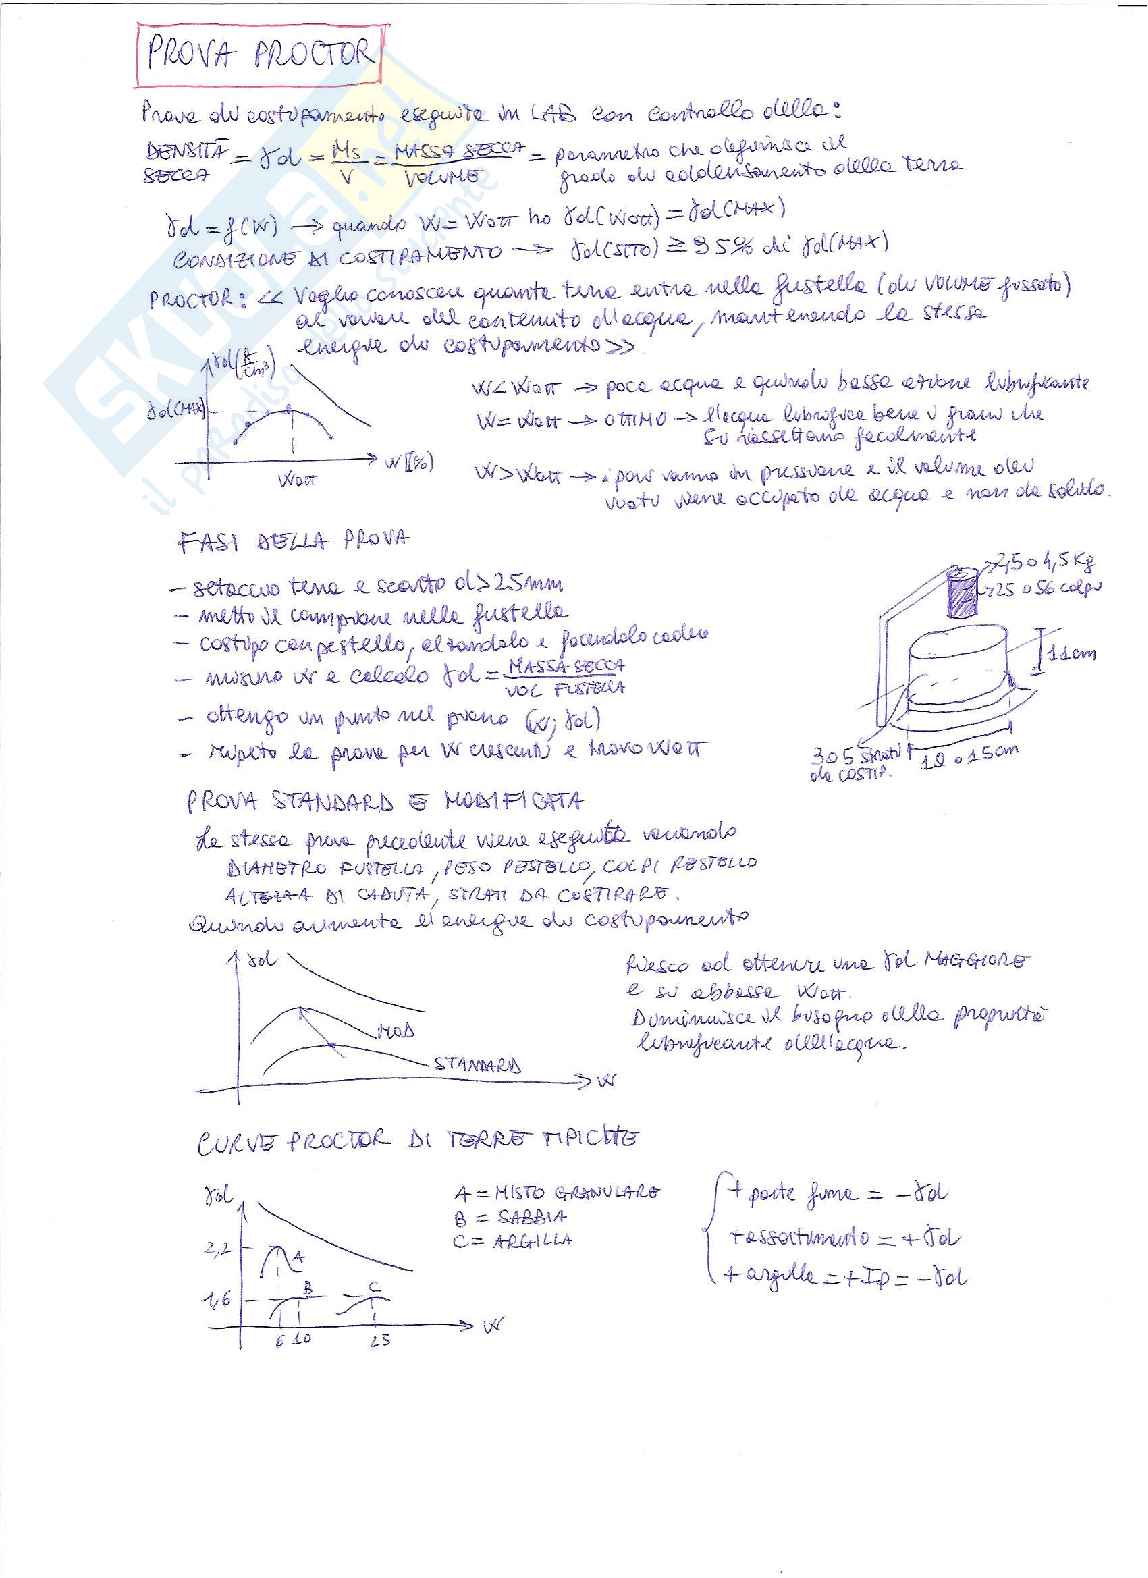 PROVA PROCTOR
Prova di costipamento eseguita in LAB con controllo della:
DENSITÀ SECCA = γd = Ms/V = MASSA SECCA/VOLUME = parametro che definisce il
grado di addensamento della terra
γd = f(W) → quando W = Wott ho γd(Wott) = γd(MAX)
CONDIZIONE DI COSTIPAMENTO → γd(SITO) ≥ 95% di γd(MAX)
PROCTOR: << Voglio conoscere quanta terra entra nella fustella (di VOLUME fissato)
al variare del contenuto d'acqua, mantenendo la stessa
energia di costipamento >>
γd
γd(MAX)
Wott
W (%)
W < Wott → poca acqua e quindi bassa azione lubrificante
W = Wott → OTTIMO → l'acqua lubrifica bene i grani che
si riassettano facilmente
W > Wott → i pori vanno in pressione e il volume dei
vuoti viene occupato da acqua e non da solido.
FASI DELLA PROVA
- setaccio terra e scarto d > 25mm
- metto il campione nella fustella
- costipo con pestello, alzandolo e facendolo cadere
- misuro W e calcolo γd = MASSA SECCA/VOL FUSTELLA
- ottengo un punto nel piano (W; γd)
- ripeto la prova per W crescenti e trovo Wott
2,5 o 4,5 Kg
25 o 56 colpi
11cm
10 o 15cm
3 o 5 strati
da COSTIP.
PROVA STANDARD E MODIFICATA
La stessa prova precedente viene eseguita variando
DIAMETRO FUSTELLA, PESO PESTELLO, COLPI PESTELLO
ALTEZZA DI CADUTA, STRATI DA COSTIPARE.
Quando aumenta l'energia di costipamento
γd
MOD
STANDARD
W
Riesco ad ottenere una γd MAGGIORE
e si abbassa Wott.
Diminuisce il bisogno della proprietà
lubrificante dell'acqua.
CURVE PROCTOR DI TERRE TIPICHE
γd
2,2
1,6
A
B
C
6 10
25
W
A = MISTO GRANULARE
B = SABBIA
C = ARGILLA
+ parte fina = - γd
+ assortimento = + γd
+ argilla = + Ip = - γd
SKUOLA.net
il paradiso dello studente